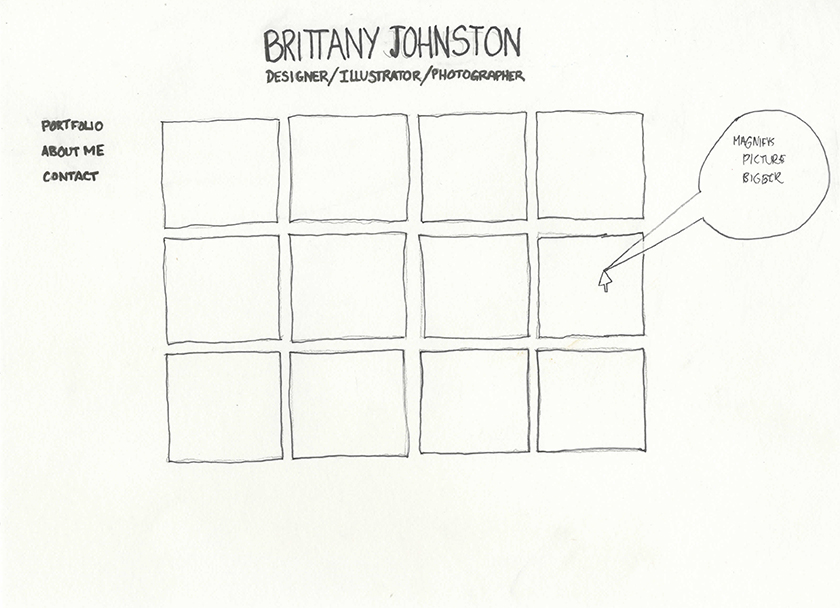 BRITTANY JOHNSTON
DESIGNER/ILLUSTRATOR/PHOTOGRAPHER
PORTFOLIO
ABOUT ME
CONTACT
MAGNIFYS
PICTURE
BIGGER